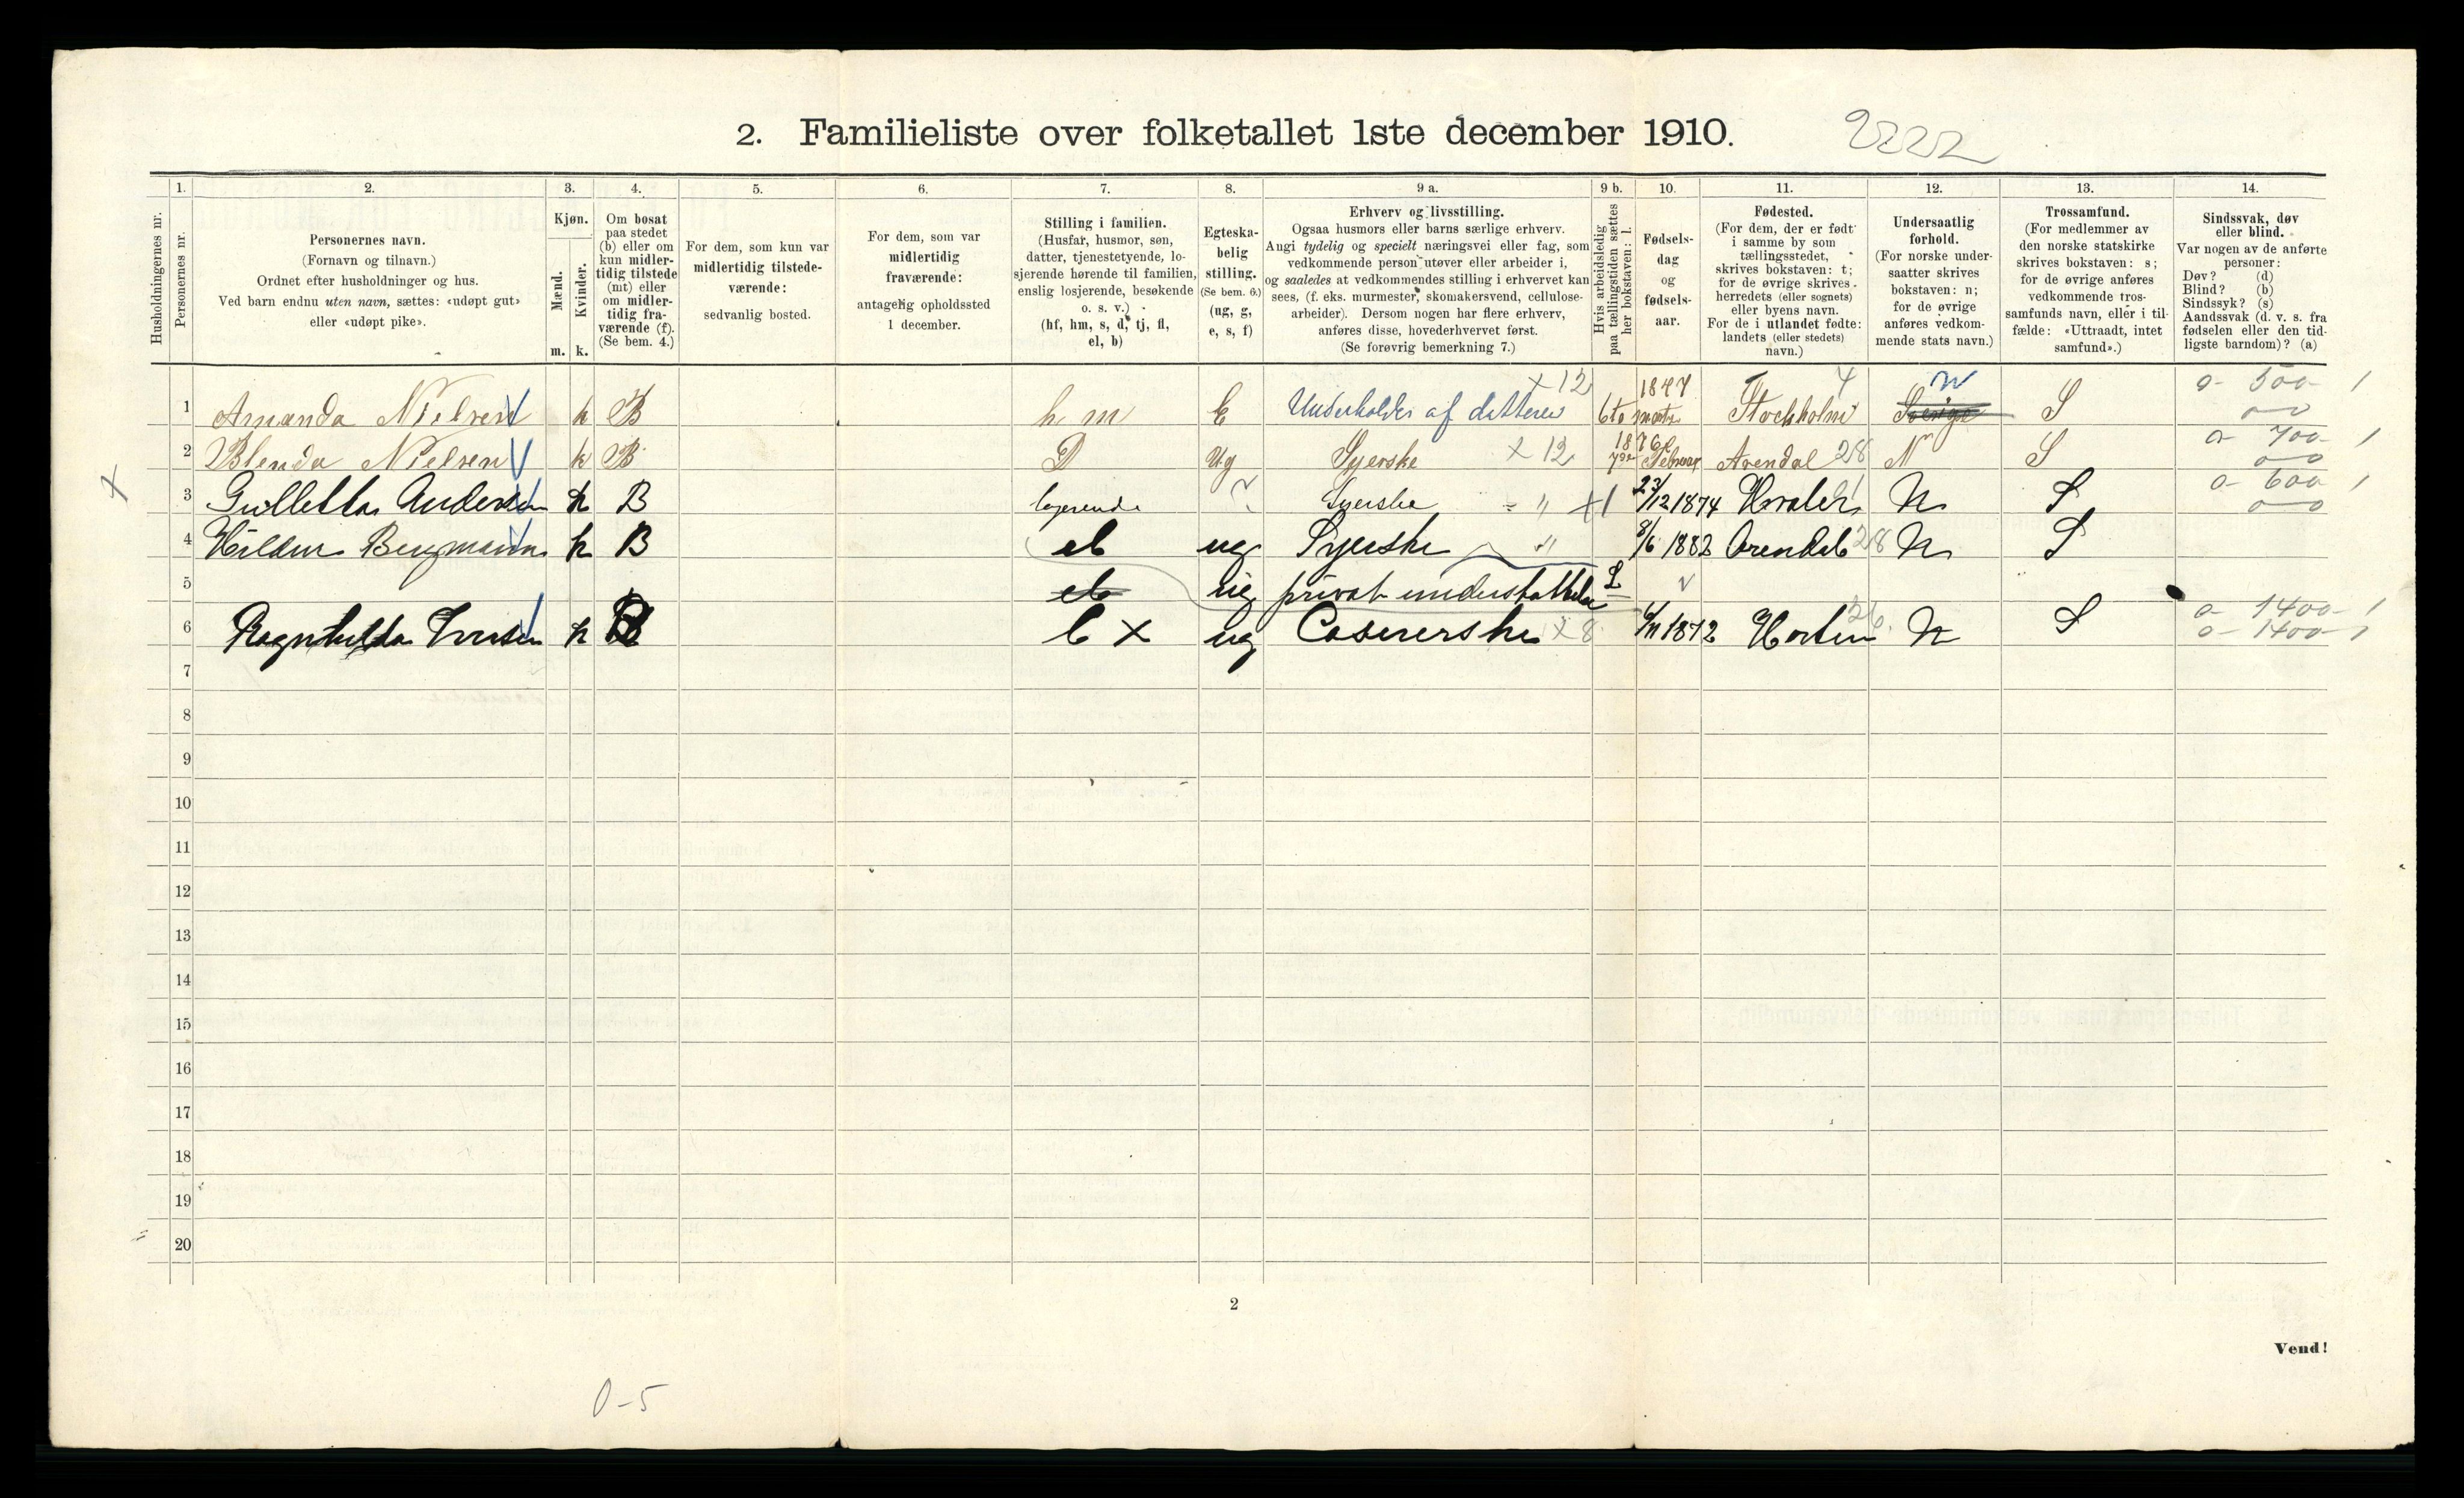 2. Familieliste over folketallet 1ste december 1910.
2222
Husholdningernes nr.
1.
Personernes nr.
2.
Personernes navn.
(Fornavn og tilnavn.)
Ordnet efter husholdninger og hus.
Ved barn endnu uten navn, sættes: «udøpt gut»
eller «udøpt pike».
3.
Kjøn.
Mænd.
Kvinder.
m. k.
4.
Om bosat
paa stedet
(b) eller om
kun midler-
tidig tilstede
(mt) eller
om midler-
tidig fra-
værende (f).
(Se bem. 4.)
5.
For dem, som kun var
midlertidig tilstede-
værende:
sedvanlig bosted.
6.
For dem, som var
midlertidig
fraværende:
antagelig opholdssted
1 december.
7.
Stilling i familien.
(Husfar, husmor, søn,
datter, tjenestetyende, lo-
sjerende hørende til familien,
enslig losjerende, besøkende
o. s. v.)
(hf, hm, s, d, tj, fl,
el, b)
8.
Egteska-
belig
stilling.
(Se bem. 6.)
(ug, g,
e, s, f)
9 a.
Erhverv og livsstilling.
Ogsaa husmors eller barns særlige erhverv.
Angi tydelig og specielt næringsvei eller fag, som
vedkommende person utøver eller arbeider i,
og saaledes at vedkommendes stilling i erhvervet kan
sees, (f. eks. murmester, skomakersvend, cellulose-
arbeider). Dersom nogen har flere erhverv,
anføres disse, hovederhvervet først.
(Se forøvrig bemerkning 7.)
9 b.
Hvis arbeidsledig
paa tællingstiden sættes
her bokstaven: l.
10.
Fødsels-
dag
og
fødsels-
aar.
11.
Fødested.
(For dem, der er født
i samme by som
tællingsstedet,
skrives bokstaven: t;
for de øvrige skrives
herredets (eller sognets)
eller byens navn.
For de i utlandet fødte:
landets (eller stedets)
navn.)
12.
Undersaatlig
forhold.
(For norske under-
saatter skrives
bokstaven: n;
for de øvrige
anføres vedkom-
mende stats navn.)
13.
Trossamfund.
(For medlemmer av
den norske statskirke
skrives bokstaven: s;
for de øvrige anføres
vedkommende tros-
samfunds navn, eller i til-
fælde: «Uttraadt, intet
samfund».)
14.
Sindssvak, døv
eller blind.
Var nogen av de anførte
personer:
Døv? (d)
Blind? (b)
Sindssyk? (s)
Aandssvak (d. v. s. fra
fødselen eller den tid-
ligste barndom)? (a)
1 Amanda Nielsen k B h m E Underholdes af datteren x 12 6te marts 1847 Stockholm 4 Sverige n S 0- 500- 1
0-0
2 Blenda Nielsen k B D Ug Syerske x 12 7de Februar 1876 Arendal 28 N S 0- 700- 1
0-0
x 3 Gulletta Andersen k B logerende Syerske = " x 1 23/12 1874 Hvaler N S 0- 600 1
0-0
4 Hilda Bergmann k B el ug Syerske " 8/6 1882 Arendal 28 N S
5 el ug privat understøttelse L
6 Ragnhilda Iversen k B l x ug Casererske x 8 4/11 1872 Horten 26 N S 0- 1400- 1
0- 1400- 1
7
8
9
10
11
12
13
14
15
16
17
18
19
20
2
Vend!
0-5